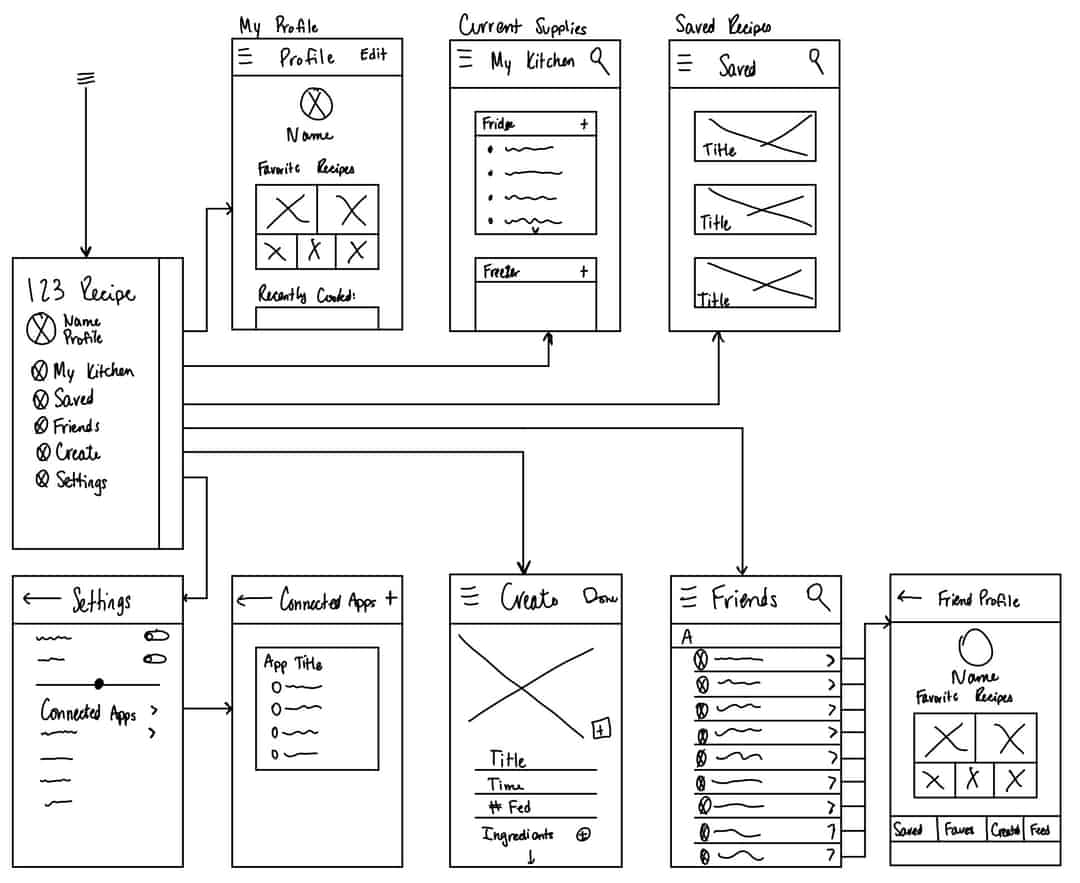 My Profile
Profile Edit
Name
Favorite Recipes
Recently Cooked:
Current Supplies
My Kitchen
Fridge +
Freezer +
Saved Recipes
Saved
Title
Title
Title
123 Recipe
Name
Profile
My Kitchen
Saved
Friends
Create
Settings
Settings
Connected Apps >
Connected Apps +
App Title
Create Done
+
Title
Time
# Fed
Ingredients +
Friends
A
Friend Profile
Name
Favorite Recipes
Saved Faves Created Feed